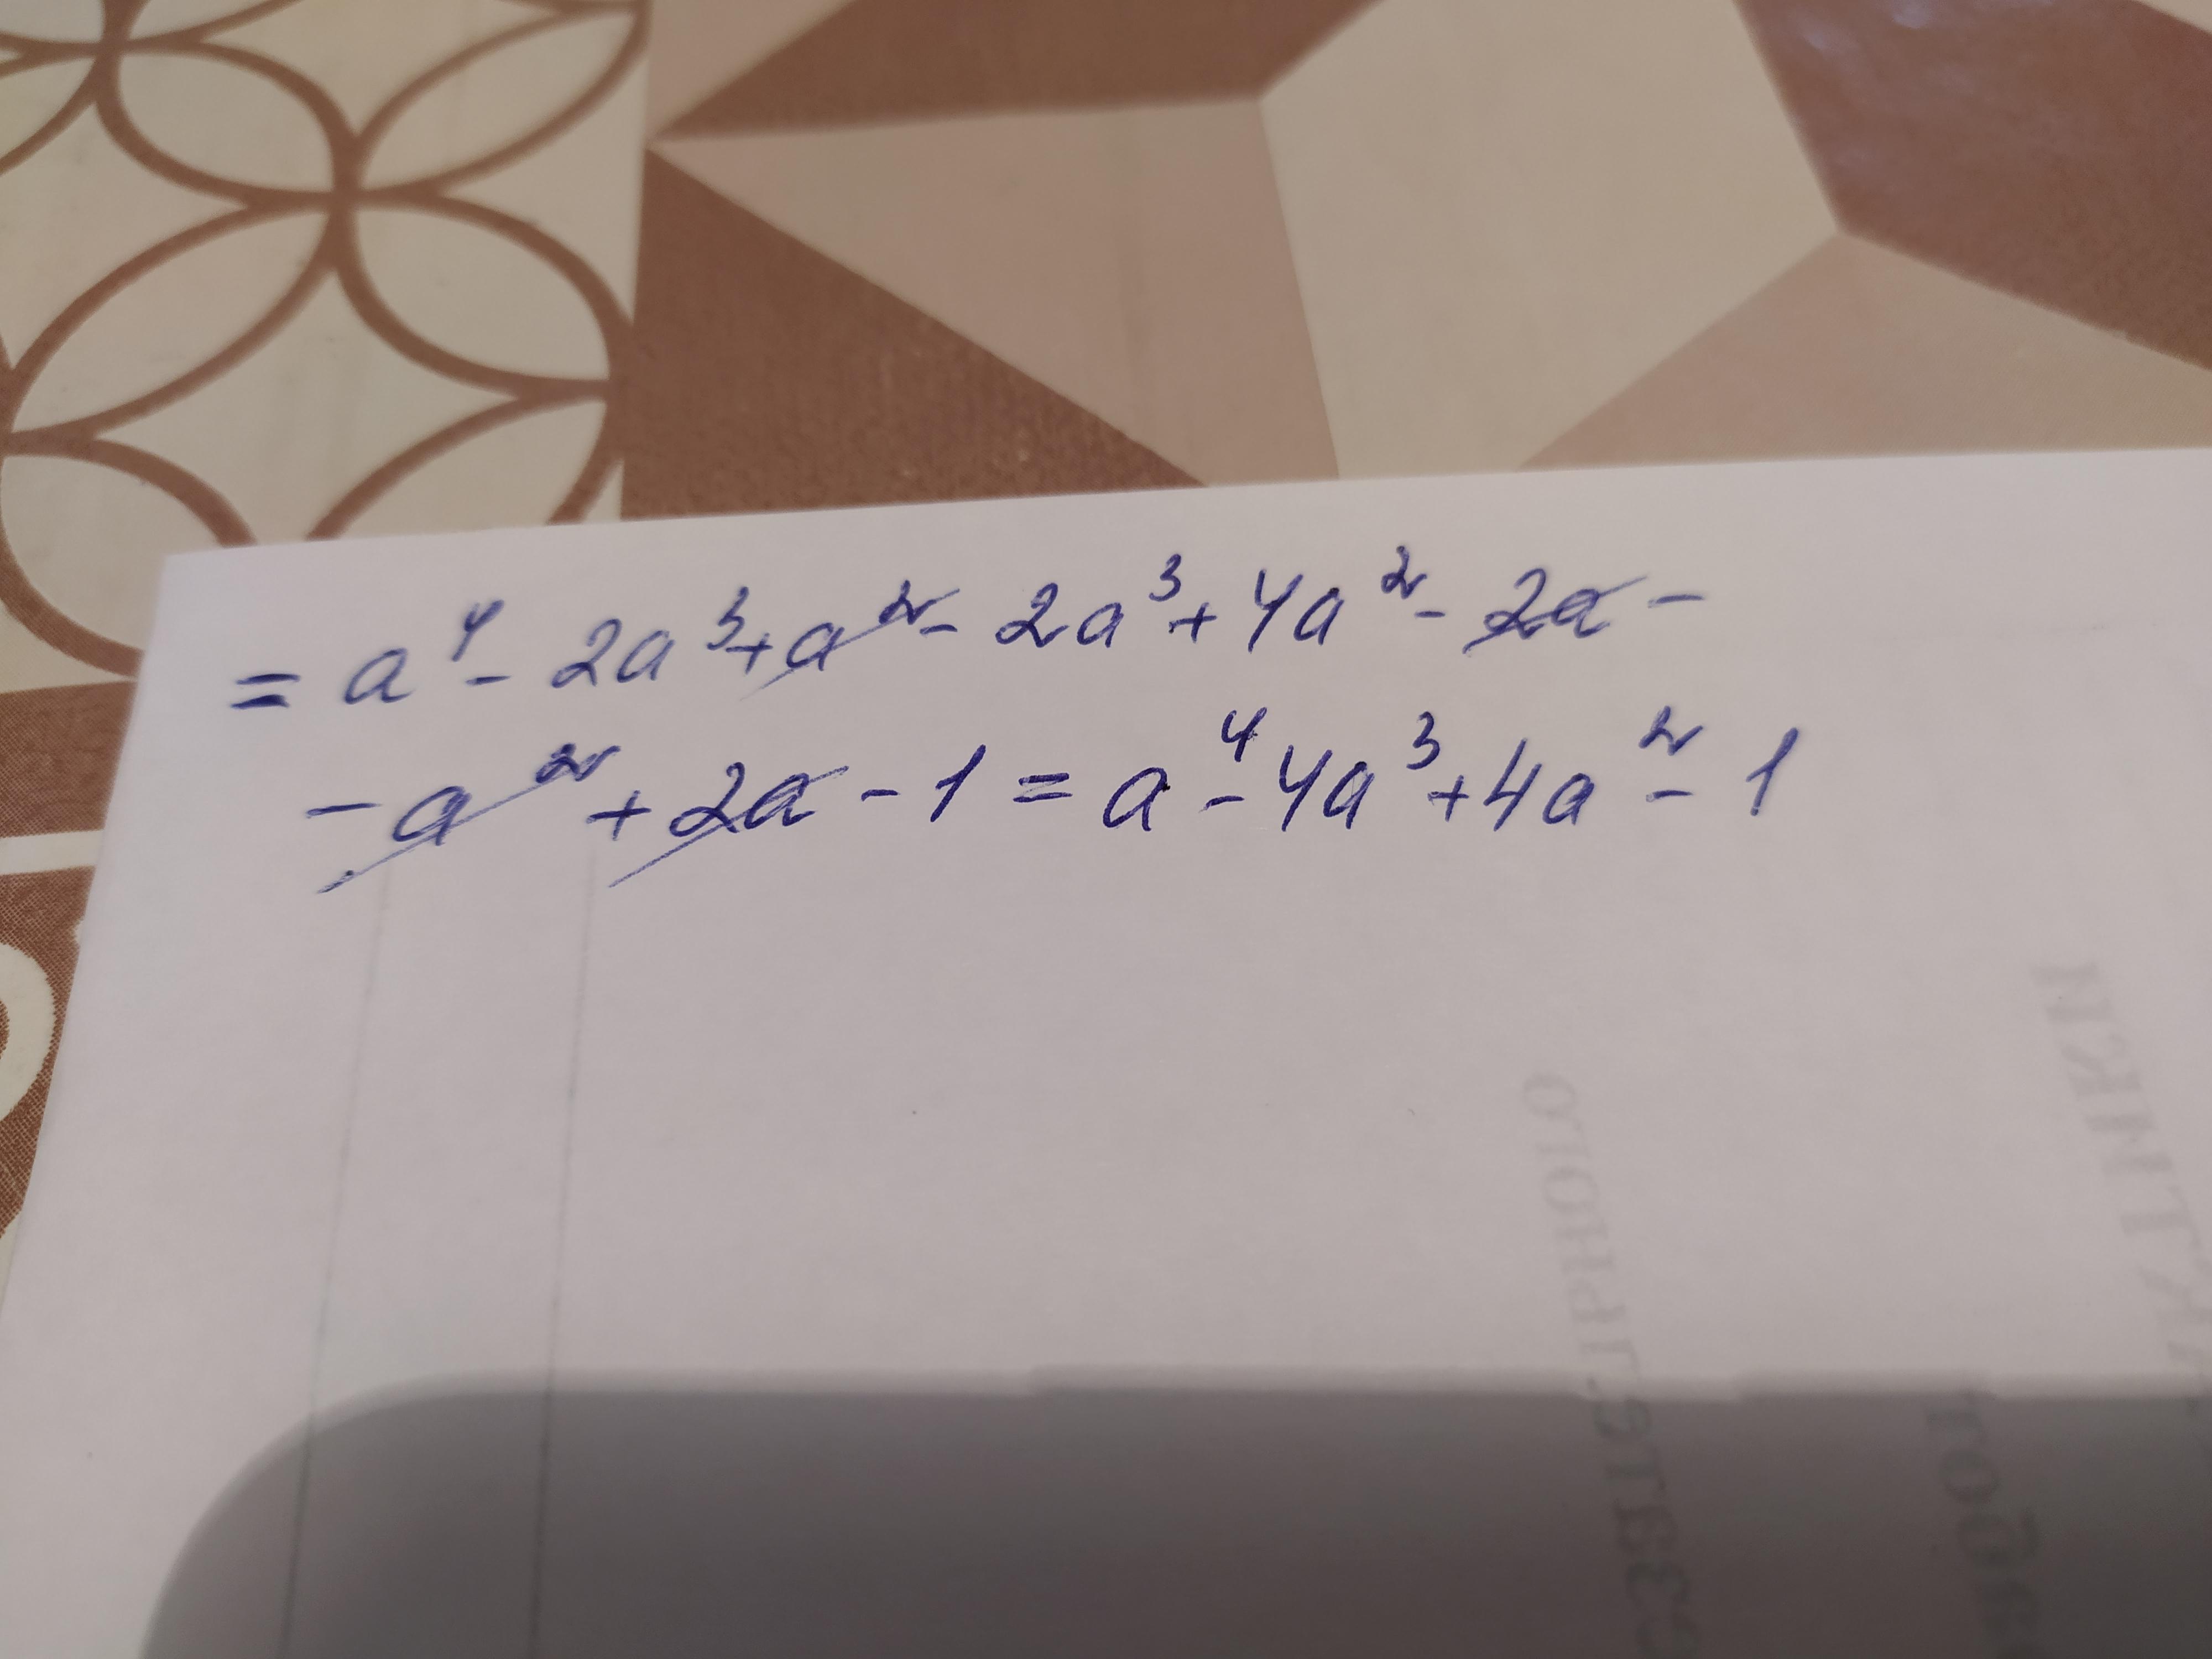 = a⁴ - 2a³ + a² - 2a³ + 4a² - 2a -
- a² + 2a - 1 = a⁴ - 4a³ + 4a² - 1